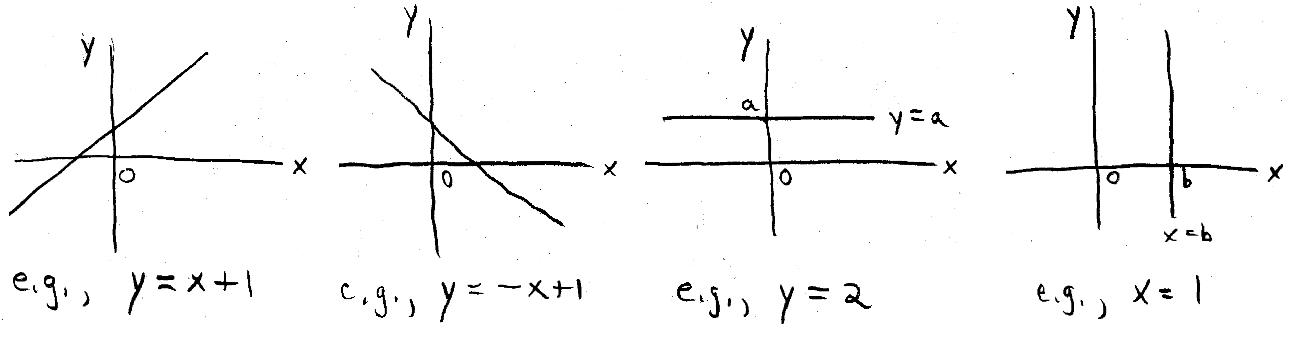 y
x
0
e.g., y = x+1
y
x
0
e.g., y = -x+1
y
a
y = a
x
0
e.g., y = 2
y
x
0
b
x = b
e.g., x = 1